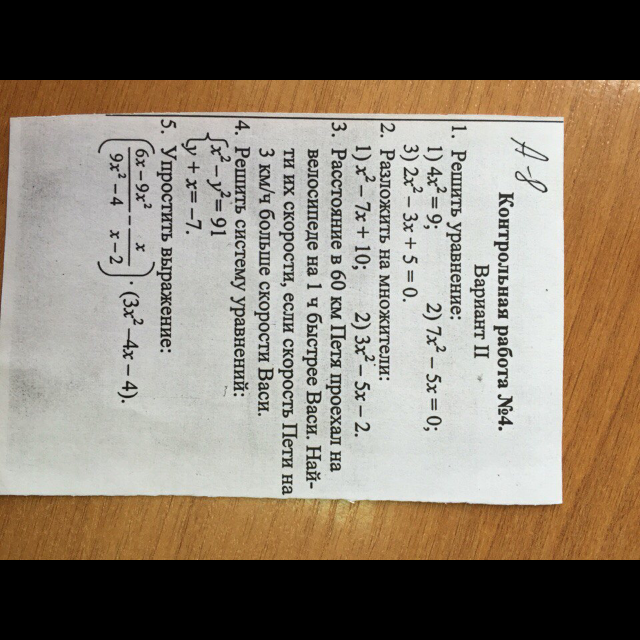 А-8
Контрольная работа №4.
Вариант II
1. Решить уравнение:
1) 4x² = 9; 2) 7x² – 5x = 0;
3) 2x² – 3x + 5 = 0.
2. Разложить на множители:
1) x² – 7x + 10; 2) 3x² – 5x – 2.
3. Расстояние в 60 км Петя проехал на
велосипеде на 1 ч быстрее Васи. Най-
ти их скорости, если скорость Пети на
3 км/ч больше скорости Васи.
4. Решить систему уравнений:
{x² – y² = 91
{y + x = –7.
5. Упростить выражение:
((6x – 9x²)/(9x² – 4) – x/(x – 2)) · (3x² – 4x – 4).